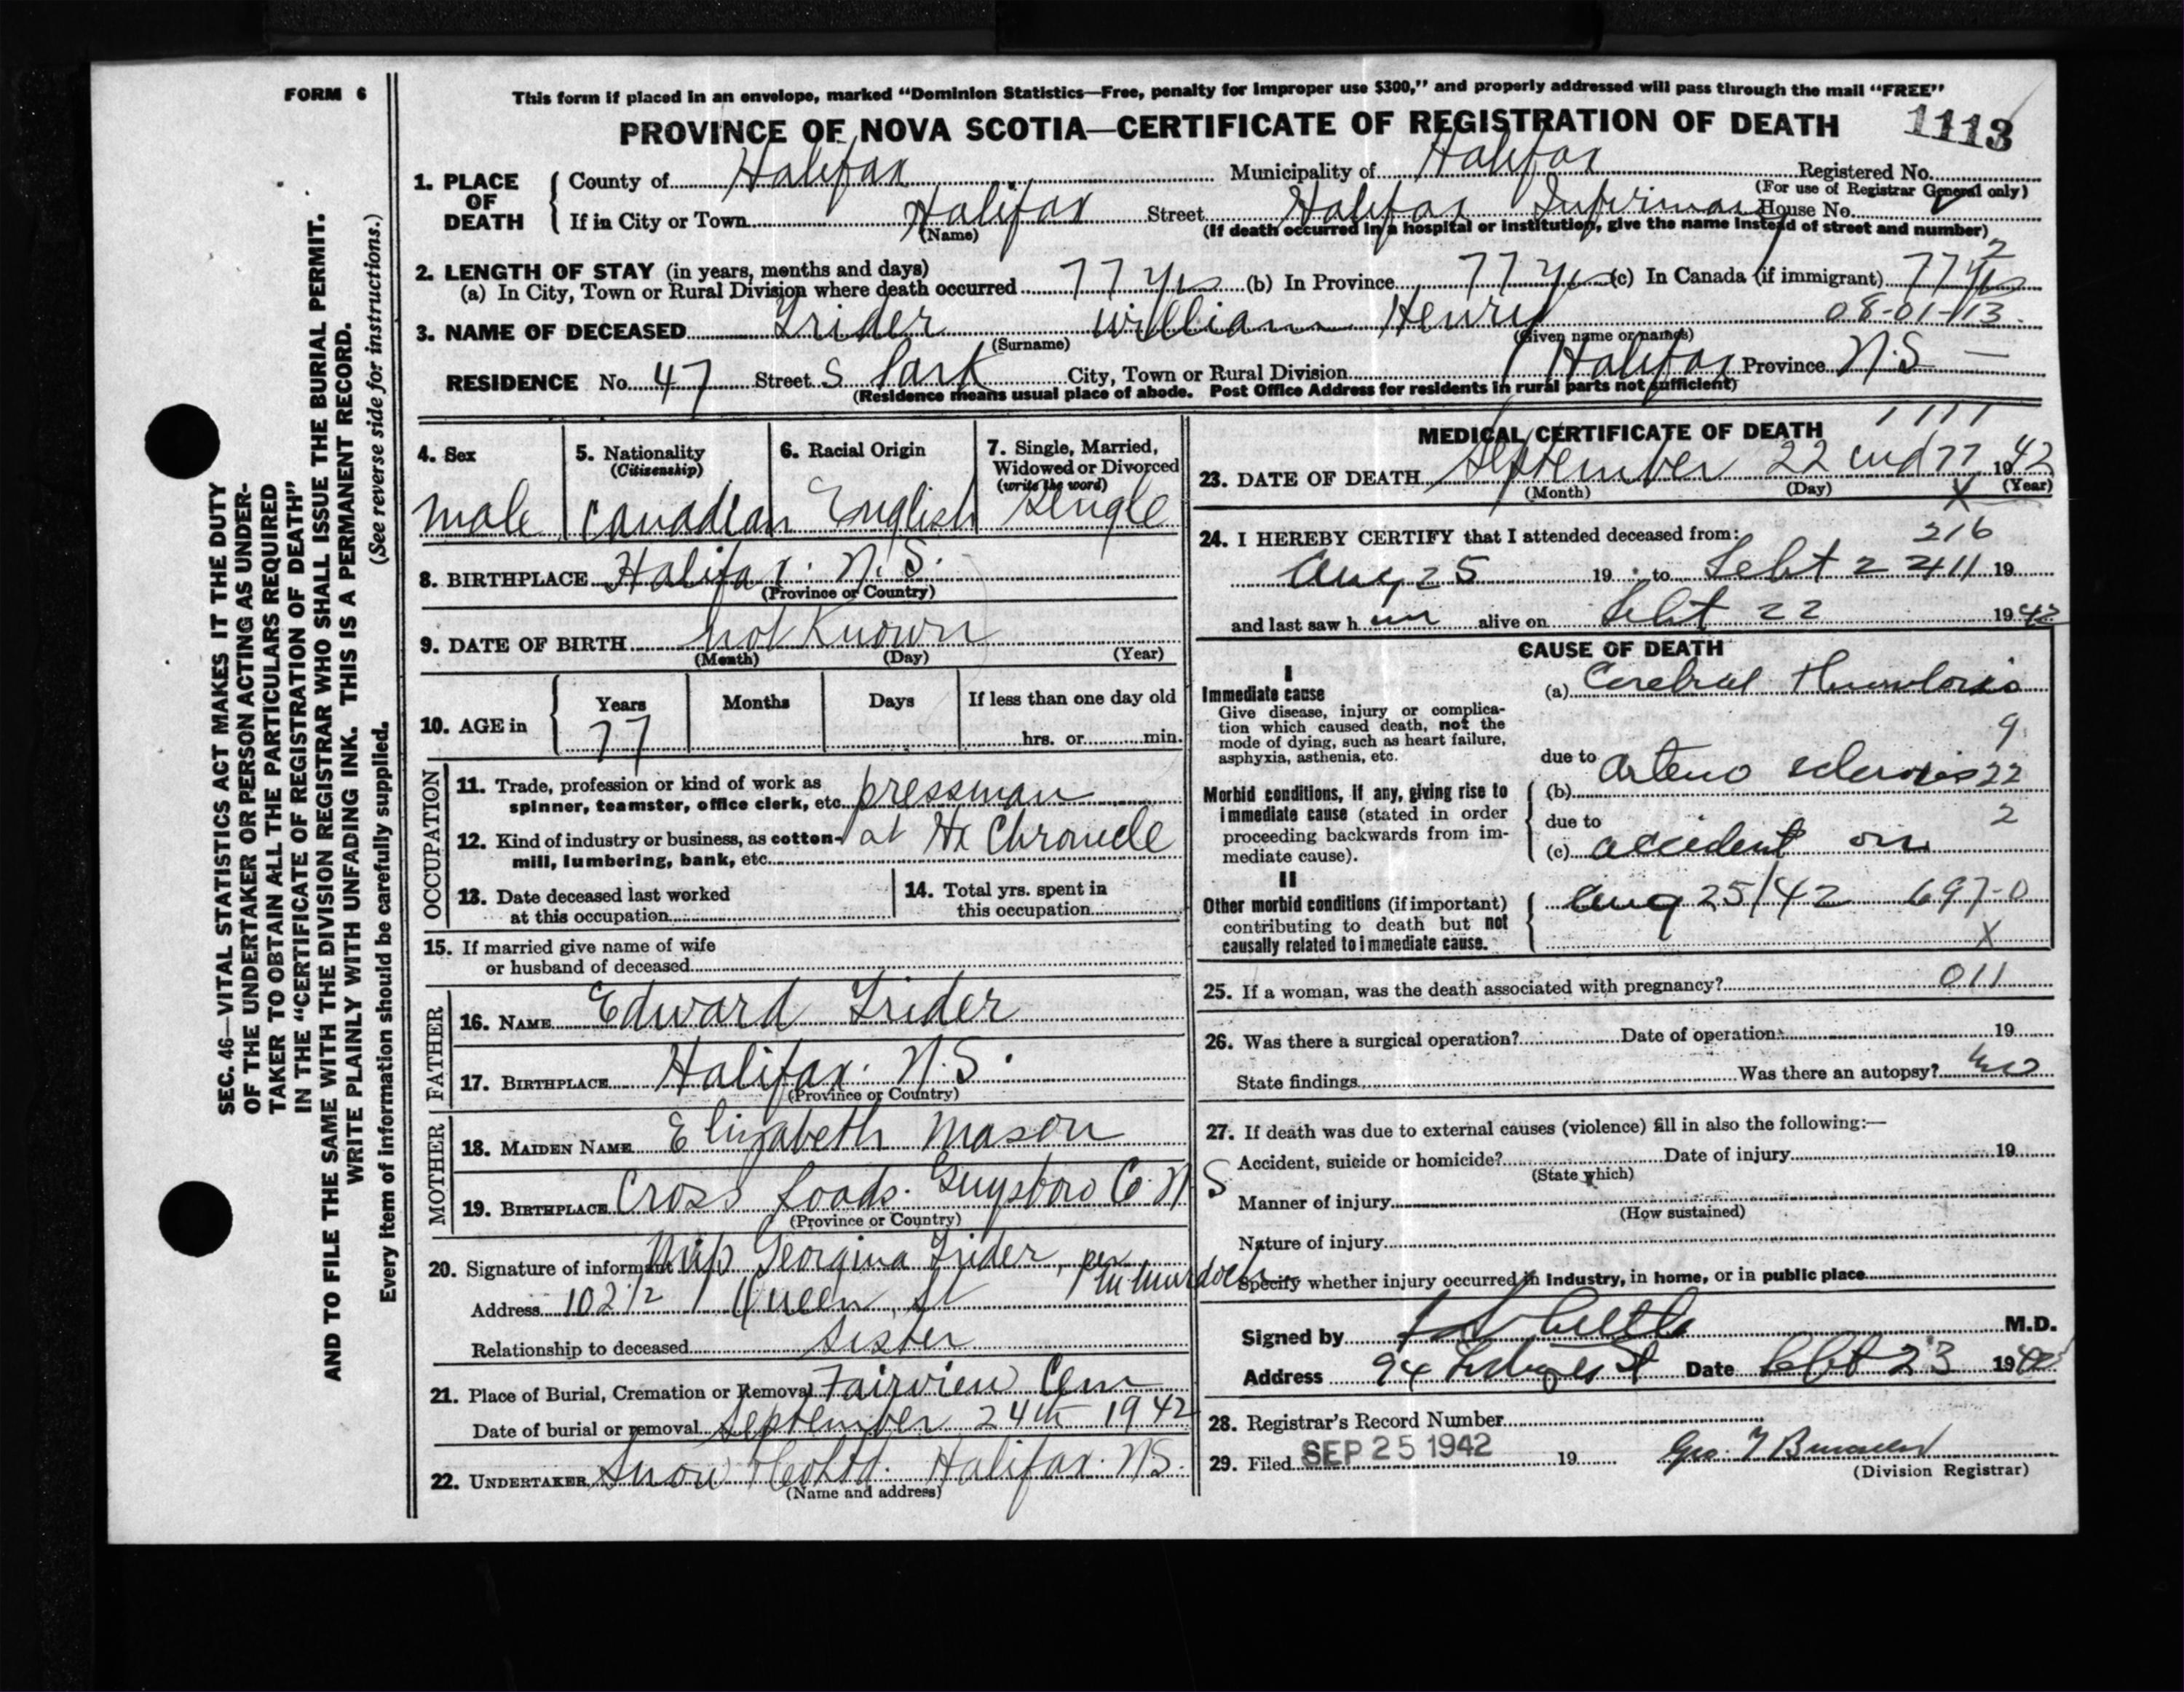 FORM 6
This form if placed in an envelope, marked "Dominion Statistics—Free, penalty for improper use $300," and properly addressed will pass through the mail "FREE"
PROVINCE OF NOVA SCOTIA—CERTIFICATE OF REGISTRATION OF DEATH 1113
1. PLACE OF DEATH
County of Halifax Municipality of Halifax Registered No.
(For use of Registrar General only)
If in City or Town Halifax Street Halifax Infirmary House No.
(Name) (If death occurred in a hospital or institution, give the name instead of street and number)
2. LENGTH OF STAY (in years, months and days)
(a) In City, Town or Rural Division where death occurred 77 yrs (b) In Province 77 yrs (c) In Canada (if immigrant) 77 yrs
2
3. NAME OF DECEASED William Henry 08-01-113
(Surname) (Given name or names)
RESIDENCE No. 47 Street S Park City, Town or Rural Division Halifax Province N.S —
(Residence means usual place of abode. Post Office Address for residents in rural parts not sufficient)
4. Sex
male
5. Nationality
(Citizenship)
Canadian
6. Racial Origin
English
7. Single, Married,
Widowed or Divorced
(write the word)
Single
8. BIRTHPLACE Halifax. N.S.
(Province or Country)
9. DATE OF BIRTH not Known
(Month) (Day) (Year)
10. AGE in
Years Months Days If less than one day old
77 hrs. or min.
OCCUPATION
11. Trade, profession or kind of work as
spinner, teamster, office clerk, etc. pressman
12. Kind of industry or business, as cotton-
mill, lumbering, bank, etc. at Hx Chronicle
13. Date deceased last worked
at this occupation
14. Total yrs. spent in
this occupation
15. If married give name of wife
or husband of deceased
FATHER
16. NAME Edward
17. BIRTHPLACE Halifax. N.S.
(Province or Country)
MOTHER
18. MAIDEN NAME Elizabeth Mason
19. BIRTHPLACE Cross Roads. Guysboro Co. N S
(Province or Country)
20. Signature of informant Georgina per M Murdoch
Address 102 1/2 Queen St
Relationship to deceased Sister
21. Place of Burial, Cremation or Removal Fairview Cem
Date of burial or removal September 24th 1942
22. UNDERTAKER Snow & Co Ltd. Halifax. N.S.
(Name and address)
1111
MEDICAL CERTIFICATE OF DEATH
23. DATE OF DEATH September 22 77 1942
(Month) (Day) (Year)
X
24. I HEREBY CERTIFY that I attended deceased from:
216
Aug 25 19 to Sept 2 19
and last saw h im alive on Sept 22 1942
CAUSE OF DEATH
I
Immediate cause
Give disease, injury or complica-
tion which caused death, not the
mode of dying, such as heart failure,
asphyxia, asthenia, etc.
(a) Cerebral Thrombosis
9
due to
Morbid conditions, if any, giving rise to
immediate cause (stated in order
proceeding backwards from im-
mediate cause).
(b) Arterio sclerosis 22
due to 2
(c) accident on
II
Other morbid conditions (if important)
contributing to death but not
causally related to immediate cause.
Aug 25/42 697-0
X
25. If a woman, was the death associated with pregnancy? 011
26. Was there a surgical operation? Date of operation: 19
State findings Was there an autopsy? no
27. If death was due to external causes (violence) fill in also the following:—
Accident, suicide or homicide? Date of injury 19
(State which)
Manner of injury
(How sustained)
Nature of injury
Specify whether injury occurred in industry, in home, or in public place
Signed by M.D.
Address 94 Date Sept 23 19
28. Registrar's Record Number
29. Filed SEP 25 1942 19 Geo.
(Division Registrar)
SEC. 46—VITAL STATISTICS ACT MAKES IT THE DUTY
OF THE UNDERTAKER OR PERSON ACTING AS UNDER-
TAKER TO OBTAIN ALL THE PARTICULARS REQUIRED
IN THE "CERTIFICATE OF REGISTRATION OF DEATH"
AND TO FILE THE SAME WITH THE DIVISION REGISTRAR WHO SHALL ISSUE THE BURIAL PERMIT.
WRITE PLAINLY WITH UNFADING INK. THIS IS A PERMANENT RECORD.
(See reverse side for instructions.)
Every item of information should be carefully supplied.